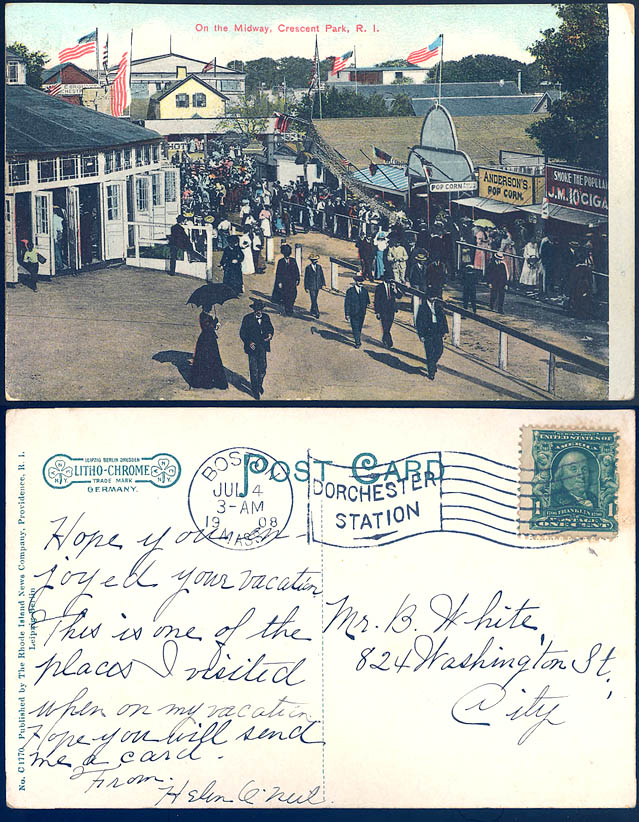 On the Midway, Crescent Park, R. I.
POP CORN
ANDERSON'S
POP CORN.
SMOKE THE POPULAR
J.M. 10¢ CIGA
No. C1170. Published by The Rhode Island News Company, Providence, R. I.
Leipzig-Berlin
LEIPZIG BERLIN DRESDEN
LITHO-CHROME
TRADE MARK
GERMANY.
POST CARD
BOSTON
JUL 4
3-AM
1908
MASS.
DORCHESTER
STATION
UNITED STATES OF
AMERICA
1 FRANKLIN 1
POSTAGE
ONE CENT
Hope you en-
joyed your vacation
This is one of the
places I visited
when on my vacation
Hope you will send
me a card.
From.
Helen O'Neil.
Mr. B. White,
824 Washington St.
City